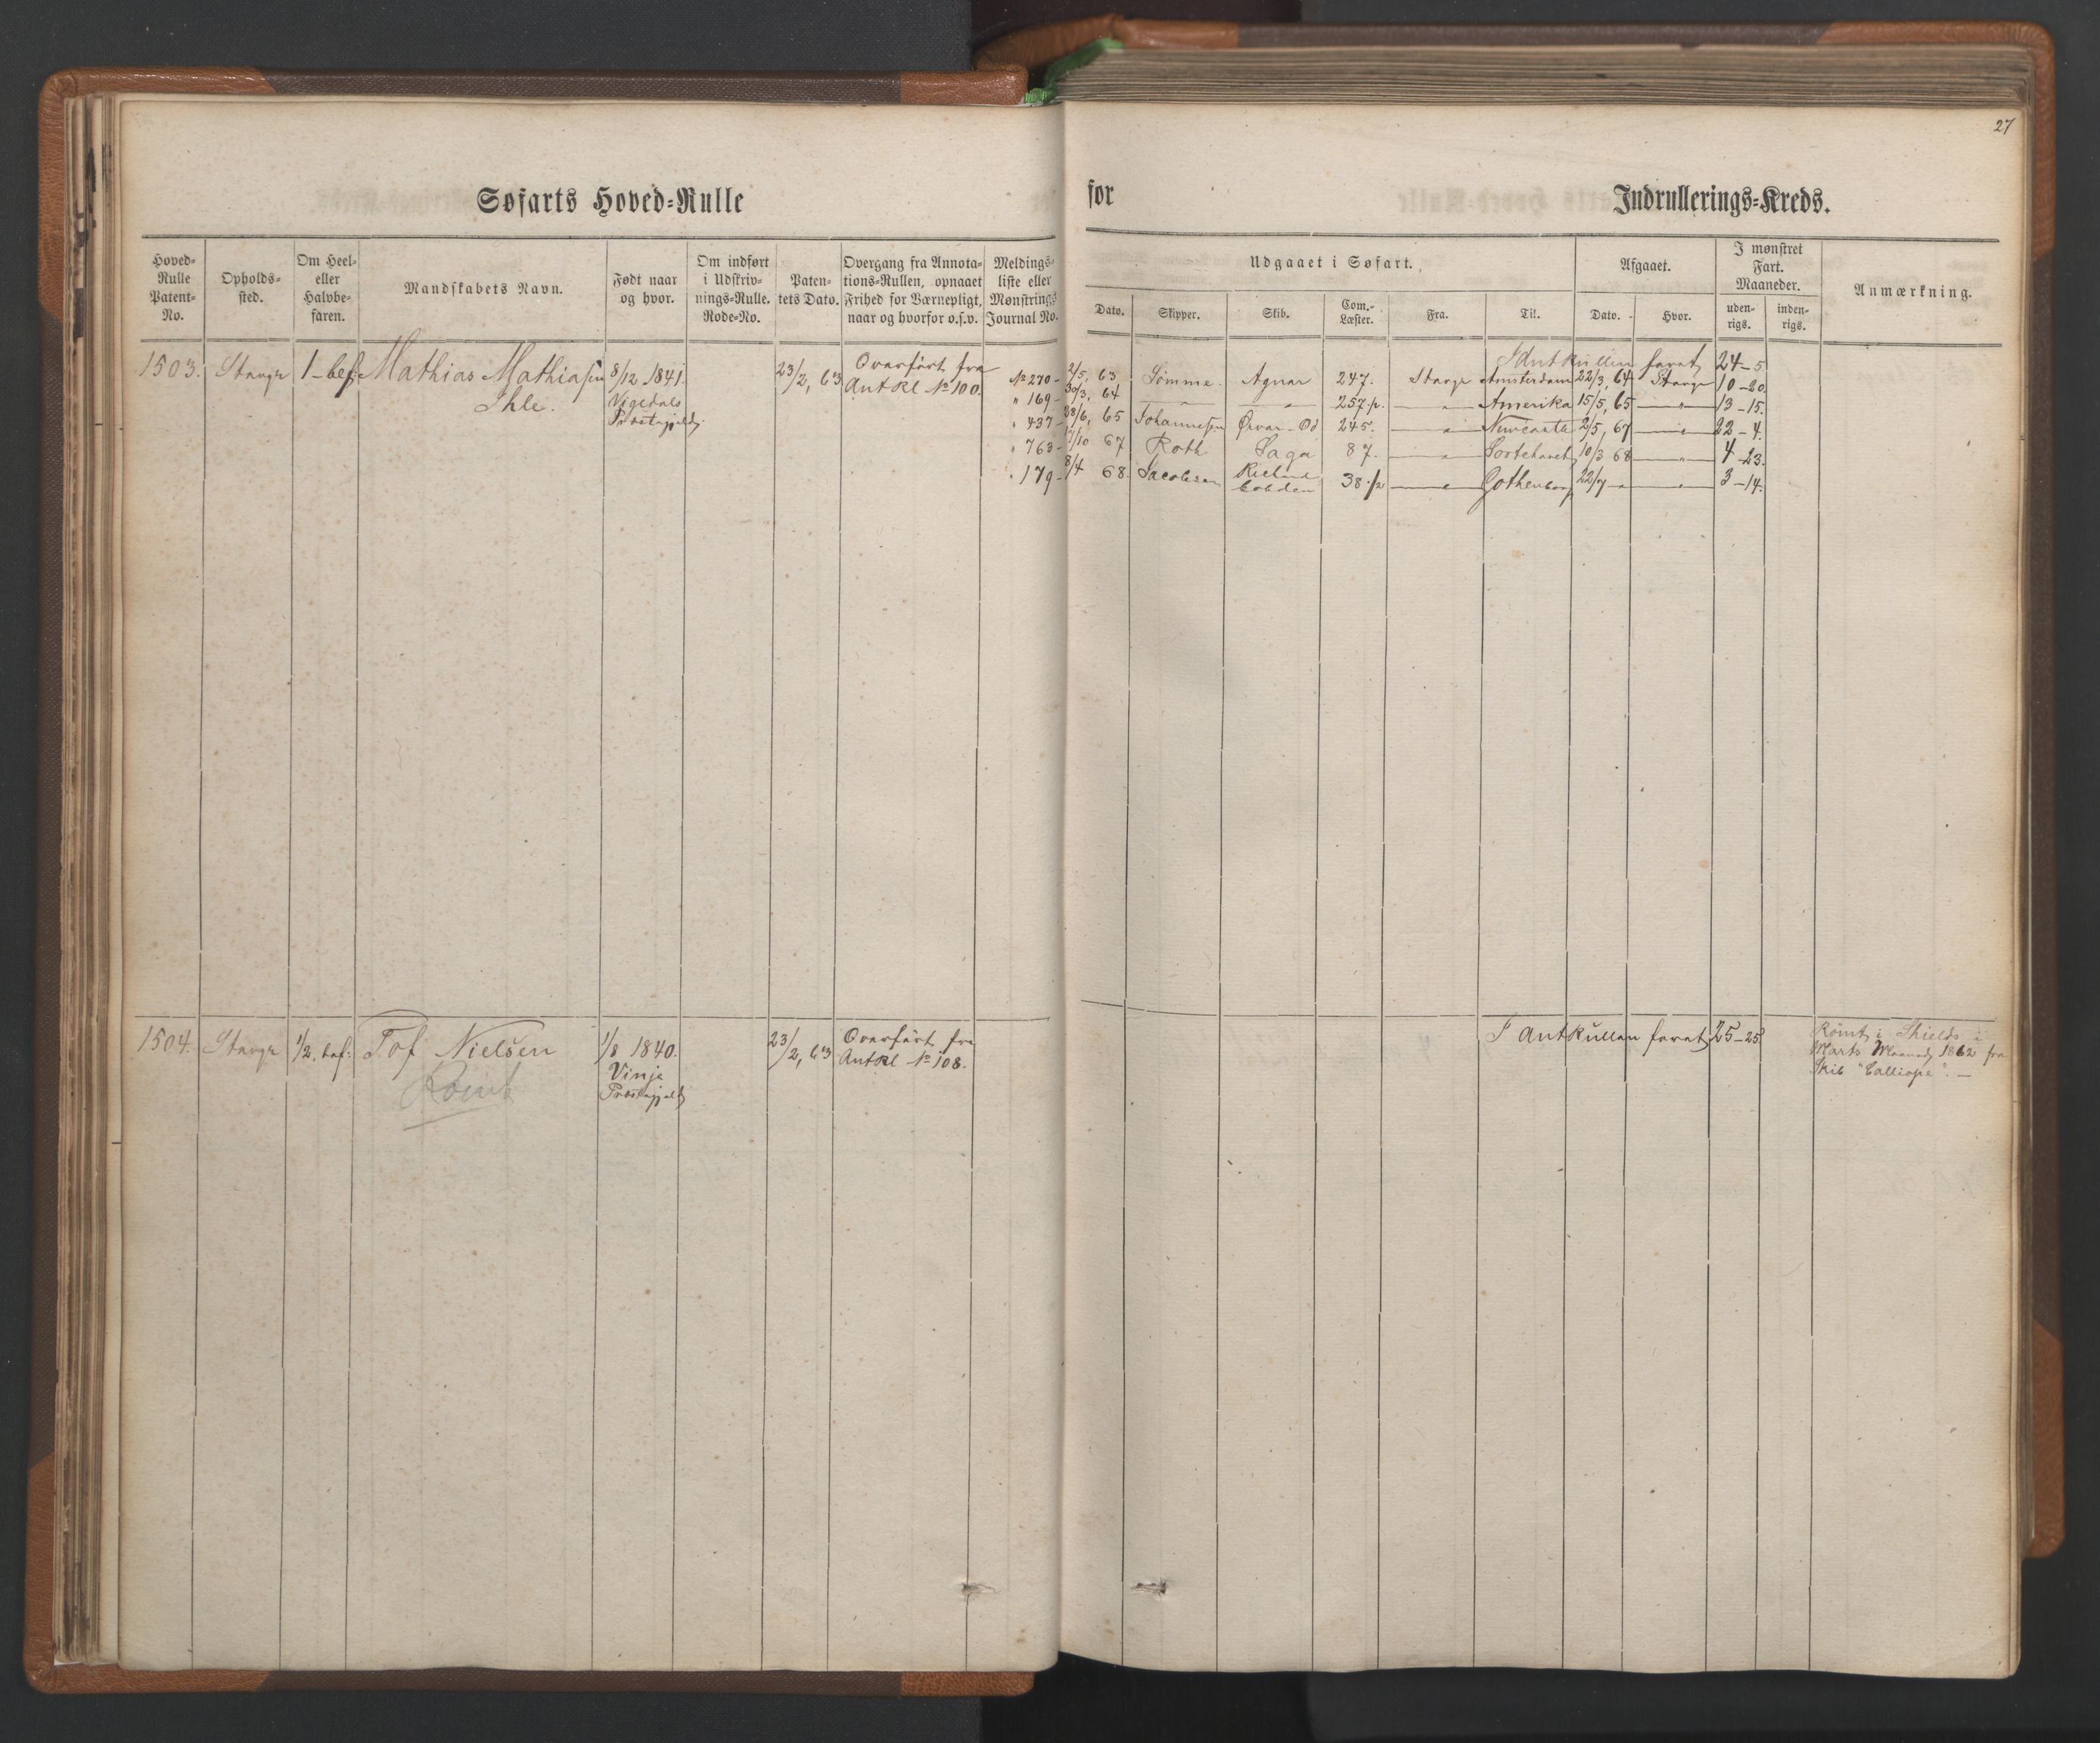 27
Søfarts Hoved-Rulle
for
Indrullerings-Kreds.
Hoved-
Rulle
Patent-
No.
Opholds-
sted.
Om Heel-
eller
Halvbe-
faren.
Mandskabets Navn.
Født naar
og hvor.
Om indført
i Udskriv-
nings-Rulle.
Rode-No.
Paten-
tets Dato.
Overgang fra Annota-
tions-Rullen, opnaaet
Frihed for Værnepligt,
naar og hvorfor o.s.v.
Meldings-
liste eller
Mønstrings
Journal No.
Udgaaet i Søfart.
Dato.
Skipper.
Skib.
Com.-
Læster.
Fra.
Til.
Afgaaet.
Dato.
Hvor.
I mønstret
Fart.
Maaneder.
uden-
rigs.
inden-
rigs.
Anmærkning.
1503. Stavgr 1-bef. Mathias Mathiasen 8/12 1841. 23/2, 63 Overført fra
Ihle. Vigedals Antrl No 100.
Præstegjeld
I Antrullen faret 24-5
No 270- 2/5, 63 Sömme. Agnar 247. Stavgr Amsterdam 22/3, 64 Stavgr 10-20.
" 169- 30/3, 64 " " 257 p. " Amerika 15/5, 65 " 13-15.
" 437- 28/6, 65 Johannesen Ørvar-Od 245. " Newcastle 2/5, 67 " 22-4.
" 763- 17/10 67 Roth Saga 87. " Sortehavet 10/3 68 " 4-23.
" 179- 8/4 68. Jacobsen Richard
Cobden 38 1/2 " Gothenborg 22/7 " " 3-14.
1504. Stavgr 1/2. bef: Tof Nielsen 1/8 1840. 23/2, 63 Overført fra
Vinje Antrl No 108.
Præstegjeld
Römt
I Antrullen faret 25-25
Römt i Shields i
Marts Maaned 1862 fra
Skib "Calliope". —